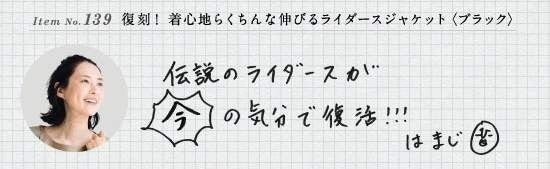 Item No.139 復刻！着心地らくちんな伸びるライダースジャケット〈ブラック〉
伝説のライダースが
今の気分で復活!!!
はまじ